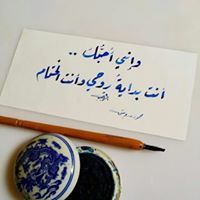 وإنني أحبّك ..
أنت بداية روحي وأنت الختام